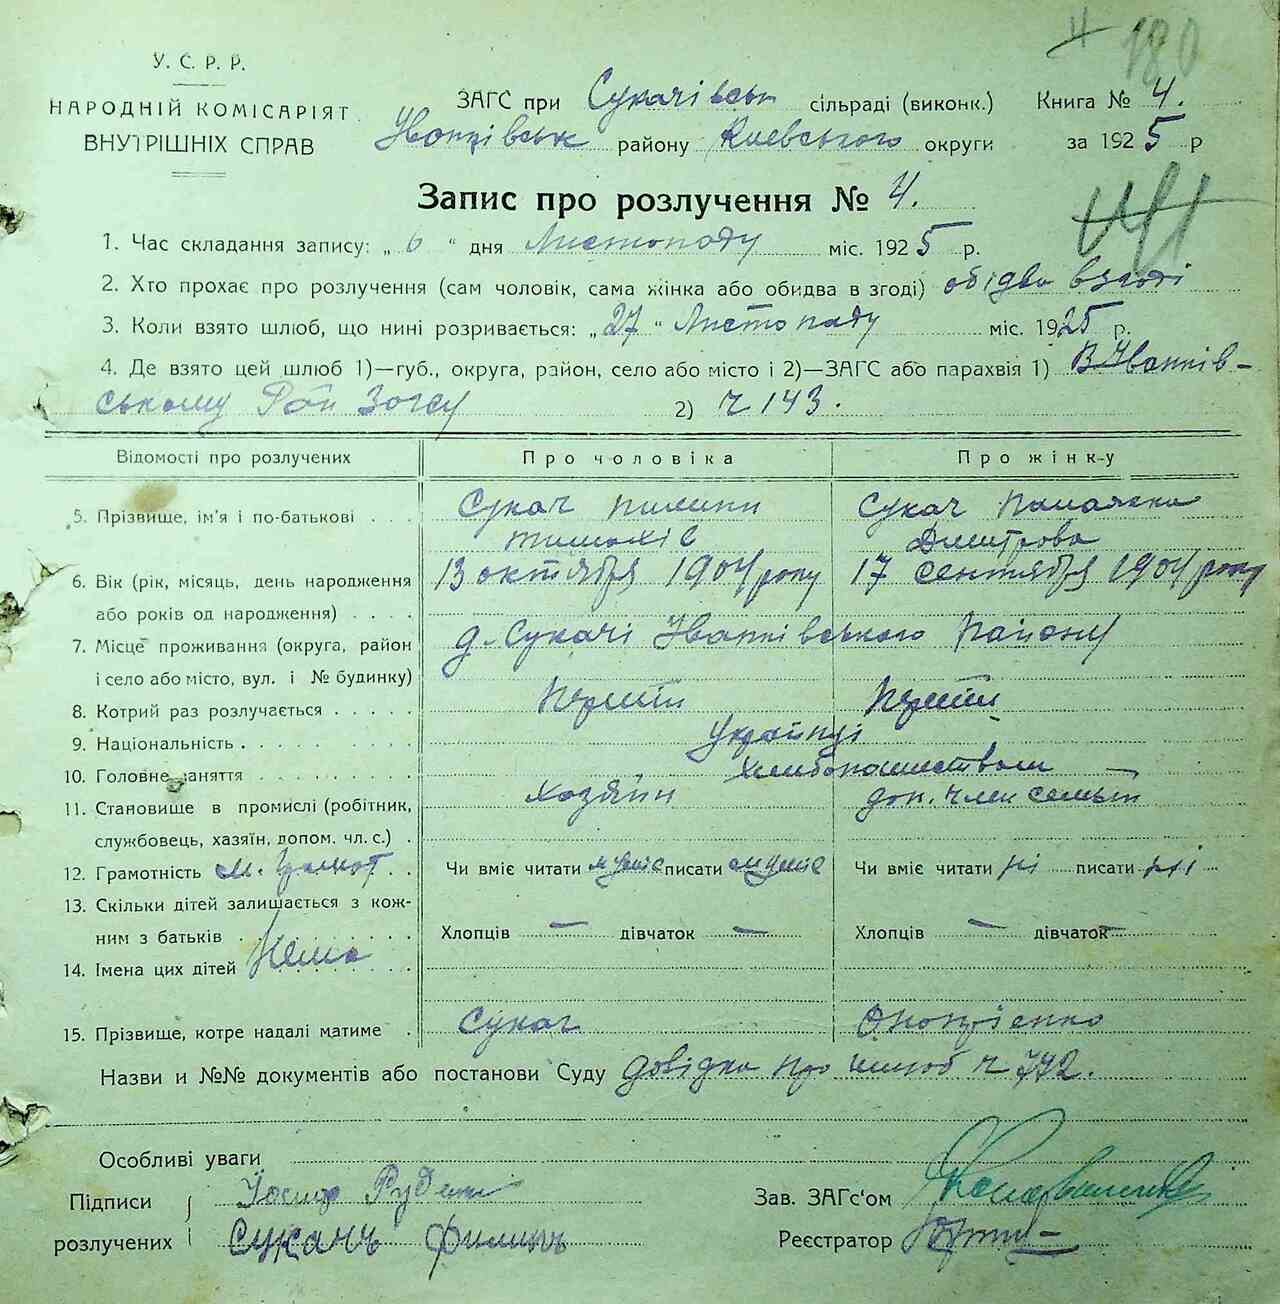 180
У. С. Р. Р.
НАРОДНІЙ КОМІСАРІЯТ
ВНУТРІШНІХ СПРАВ
ЗАГС при Сукачівськ сільраді (виконк.) Книга № 4.
району Киевського округи за 1925 р
Запис про розлучення № 4.
1. Час складання запису: „ 6 “ дня Листопаду міс. 1925 р.
2. Хто прохає про розлучення (сам чоловік, сама жінка або обидва в згоді) обідва взгоді
3. Коли взято шлюб, що нині розривається: „ 27 “ Листопаду міс. 1925 р.
4. Де взято цей шлюб 1)—губ., округа, район, село або місто і 2)—ЗАГС або парахвія 1) В Іванків-
ському Рай Загсу 2) ч 143.
Відомості про розлучених Про чоловіка Про жінку
5. Прізвище, ім'я і по-батькові Сукач Пилип Сукач Палажка
Тимохів Дмитрова
6. Вік (рік, місяць, день народження 13 октября 1904 року 17 сентября 1904 року
або років од народження)
7. Місце проживання (округа, район д. Сукачі Іванківського Району
і село або місто, вул. і № будинку)
8. Котрий раз розлучається Перший Перший
9. Національність Українці
10. Головне заняття хлибопашеством
11. Становище в промислі (робітник, хозяїн доп. член семьи
службовець, хазяїн, допом. чл. с.)
12. Грамотність м. грамот Чи вміє читати м уміє писати м уміє Чи вміє читати ні писати ні
13. Скільки дітей залишається з кож-
ним з батьків Хлопців — дівчаток — Хлопців — дівчаток —
14. Імена цих дітей Нема
15. Прізвище, котре надалі матиме Сукач Онопрієнко
Назви и №№ документів або постанови Суду довідка про шлюб ч 772.
Особливі уваги
Підписи
розлучених Сукачь Филипь
Зав. ЗАГс'ом
Реєстратор